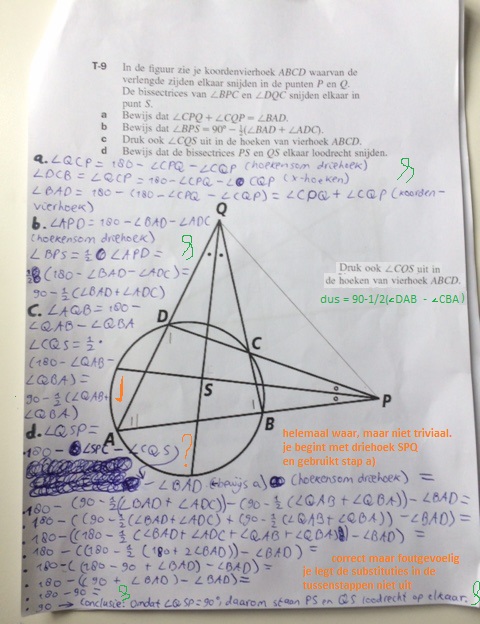 T-9 In de figuur zie je koordenvierhoek ABCD waarvan de
verlengde zijden elkaar snijden in de punten P en Q.
De bissectrices van ∠BPC en ∠DQC snijden elkaar in
punt S.
a Bewijs dat ∠CPQ + ∠CQP = ∠BAD.
b Bewijs dat ∠BPS = 90° − ½(∠BAD + ∠ADC).
c Druk ook ∠CQS uit in de hoeken van vierhoek ABCD.
d Bewijs dat de bissectrices PS en QS elkaar loodrecht snijden.
a. ∠QCP = 180 - ∠CPQ - ∠CQP (hoekensom driehoek)
∠DCB = ∠QCP = 180 - ∠CPQ - ∠CQP (x-hoeken)
∠BAD = 180 - (180 - ∠CPQ - ∠CQP) = ∠CPQ + ∠CQP (koorden-
vierhoek)
b. ∠APD = 180 - ∠BAD - ∠ADC
(hoekensom driehoek)
∠BPS = ½ ∠APD =
½(180 - ∠BAD - ∠ADC) =
90 - ½(∠BAD + ∠ADC)
C. ∠AQB = 180 -
∠QAB - ∠QBA
∠CQS = ½ ·
(180 - ∠QAB -
∠QBA) =
90 - ½(∠QAB +
∠QBA)
d. ∠QSP =
180 - ∠SPC - ∠CQS)
- ∠BAD (bewijs a) (hoekensom driehoek) =
180 - (90 - ½(∠BAD + ∠ADC)) - (90 - ½(∠QAB + ∠QBA)) - ∠BAD =
180 - ((90 - ½(∠BAD + ∠ADC) + (90 - ½(∠QAB + ∠QBA)) - ∠BAD) =
180 - ((180 - ½(∠BAD + ∠ADC + ∠QAB + ∠QBA) - ∠BAD) =
180 - ((180 - ½(180 + 2∠BAD)) - ∠BAD) =
180 - (180 - 90 + ∠BAD) - ∠BAD) =
180 - (90 + ∠BAD) - ∠BAD) =
180 - 90 =
90 → Conclusie: Omdat ∠QSP = 90°, daarom staan PS en QS loodrecht op elkaar.
Q
D
C
S
P
A
B
Druk ook ∠CQS uit in
de hoeken van vierhoek ABCD.
dus = 90-1/2(∠DAB - ∠CBA)
?
helemaal waar, maar niet triviaal.
je begint met driehoek SPQ
en gebruikt stap a)
correct maar foutgevoelig
je legt de substituties in de
tussenstappen niet uit